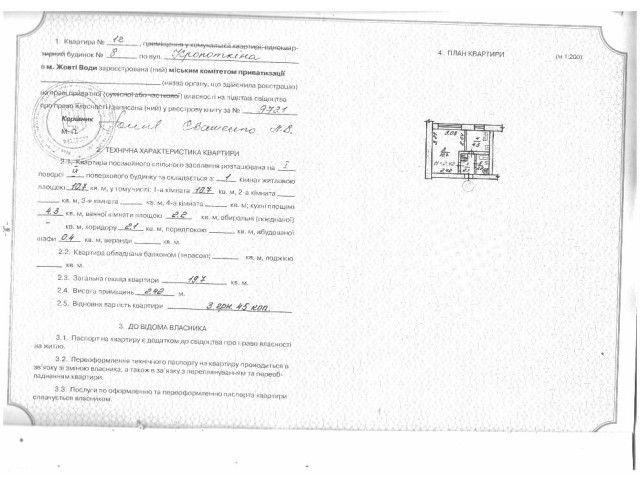 1. Квартира № 12, приміщення у комунальній квартирі, одноквар-
тирний будинок № 8 по вул. Кропоткіна
в м. Жовті Води зареєстрована (ний) міським комітетом приватизації
(назва органу, що здійснила реєстрацію)
на праві приватної (сумісної або часткової) власності на підставі свідоцтва
про право власності і записана (ний) у реєстрову книгу за № 9721
Керівник
М. П.
2. ТЕХНІЧНА ХАРАКТЕРИСТИКА КВАРТИРИ
2.1. Квартира посімейного спільного заселення розташована на I
поверсі IX поверхового будинку та складається з: 1 кімнат житловою
площею 10.7 кв. м, у тому числі: 1-а кімната 10.7 кв. м, 2-а кімната
кв. м, 3-я кімната кв. м, 4-а кімната кв. м; кухні площею
4.3 кв. м, ванної кімнати площею 2.2 кв. м, вбиральні (поєднаної)
– кв. м, коридору 2.1 кв. м, передпокою кв. м, вбудованої
шафи 0.4 кв. м, веранди кв. м.
2.2. Квартира обладнана балконом (терасою) кв. м, лоджією
кв. м.
2.3. Загальна площа квартири 19.7 кв. м.
2.4. Висота приміщень 2.42 м.
2.5. Відновна вартість квартири 3 грн. 45 коп.
3. ДО ВІДОМА ВЛАСНИКА
3.1. Паспорт на квартиру є додатком до свідоцтва про право власності
на житло.
3.2. Переоформлення технічного паспорту на квартиру проводиться в
зв'язку зі зміною власника, а також в зв'язку з переплануванням та переоб-
ладнанням квартири.
3.3. Послуги по оформленню та переоформленню паспорта квартири
сплачується власником.
4. ПЛАН КВАРТИРИ (м 1:200)